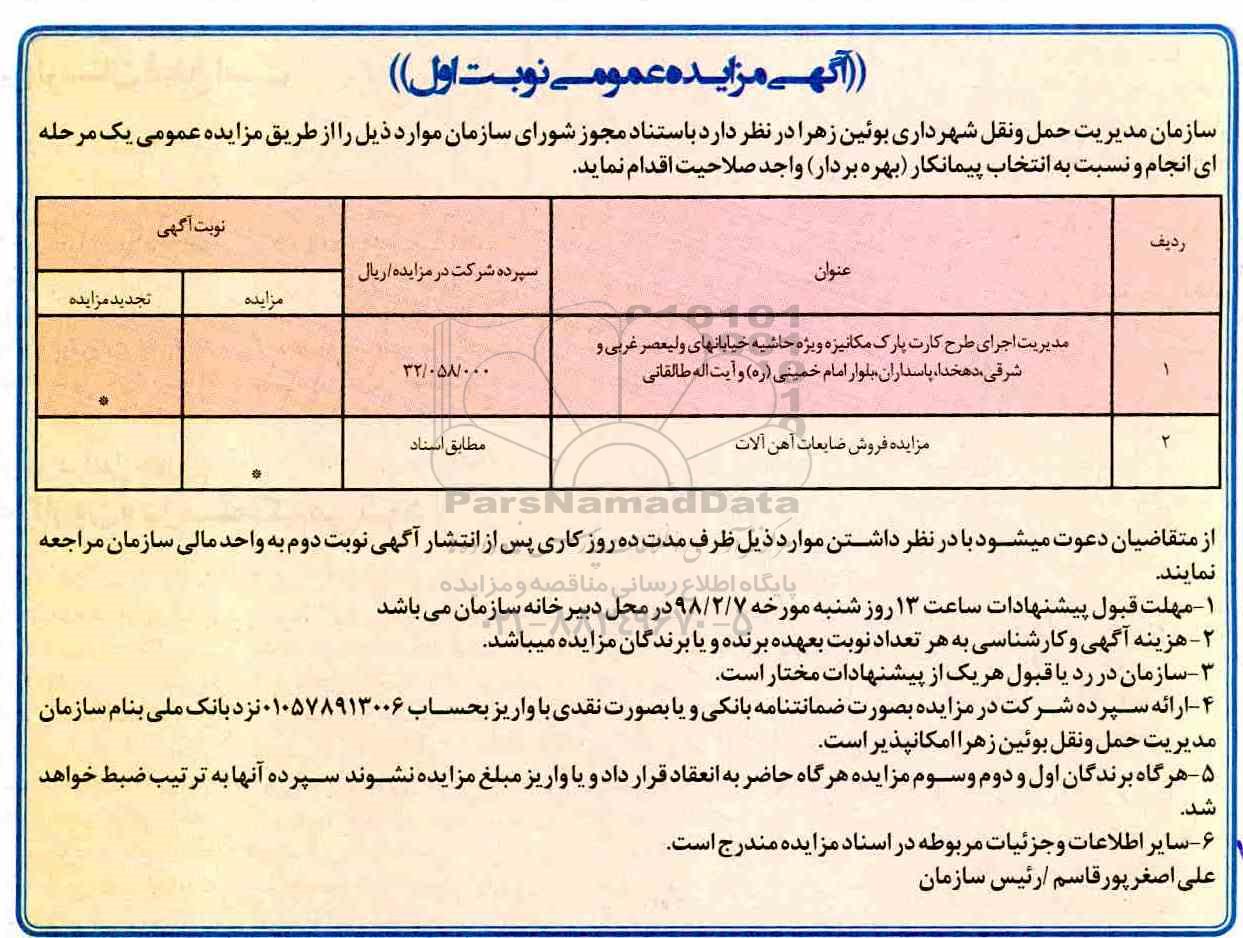 ((آگهی مزایده عمومی نوبت اول))
سازمان مدیریت حمل ونقل شهرداری بوئین زهرا در نظر دارد باستناد مجوز شورای سازمان موارد ذیل را از طریق مزایده عمومی یک مرحله
ای انجام و نسبت به انتخاب پیمانکار (بهره بردار) واجد صلاحیت اقدام نماید.
ردیف
عنوان
سپرده شرکت در مزایده/ریال
نوبت آگهی
مزایده
تجدید مزایده
۱
مدیریت اجرای طرح کارت پارک مکانیزه ویژه حاشیه خیابانهای ولیعصر غربی و
شرقی،دهخدا،پاسداران،بلوار امام خمینی (ره) و آیت اله طالقانی
۳۲/۰۵۸/۰۰۰
*
۲
مزایده فروش ضایعات آهن آلات
مطابق اسناد
*
ParsNamadData
پایگاه اطلاع رسانی مناقصه و مزایده
۰۲۱-۸۸۳۴۹۶۷۰-۵
از متقاضیان دعوت میشود با در نظر داشتن موارد ذیل ظرف مدت ده روز کاری پس از انتشار آگهی نوبت دوم به واحد مالی سازمان مراجعه
نمایند.
۱-مهلت قبول پیشنهادات ساعت ۱۳ روز شنبه مورخه ۹۸/۲/۷ در محل دبیرخانه سازمان می باشد
۲-هزینه آگهی و کارشناسی به هر تعداد نوبت بعهده برنده و یا برندگان مزایده میباشد.
۳-سازمان در رد یا قبول هر یک از پیشنهادات مختار است.
۴-ارائه سپرده شرکت در مزایده بصورت ضمانتنامه بانکی و یا بصورت نقدی با واریز بحساب ۰۱۰۵۷۸۹۱۳۰۰۶ نزد بانک ملی بنام سازمان
مدیریت حمل ونقل بوئین زهرا امکانپذیر است.
۵-هرگاه برندگان اول و دوم وسوم مزایده هرگاه حاضر به انعقاد قرار داد و یا واریز مبلغ مزایده نشوند سپرده آنها به ترتیب ضبط خواهد
شد.
۶-سایر اطلاعات و جزئیات مربوطه در اسناد مزایده مندرج است.
علی اصغر پورقاسم /رئیس سازمان